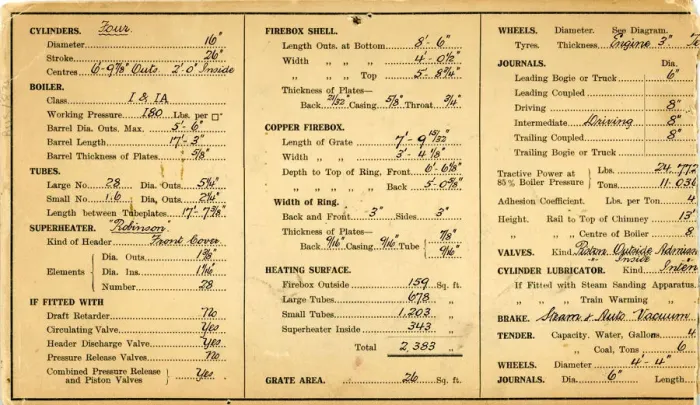 CYLINDERS. Four
Diameter 16"
Stroke 26"
Centres 6'-9⅞" Outs. 2'-0" Inside
BOILER.
Class I & IA
Working Pressure 180 Lbs. per □"
Barrel Dia. Outs. Max. 5'-6"
Barrel Length 17'-3"
Barrel Thickness of Plates 5/8"
TUBES.
Large No. 28 Dia. Outs. 5¼"
Small No. Dia. Outs. 2¼"
Length between Tubeplates 17'-7⅜"
SUPERHEATER. "Robinson"
Kind of Header Front Cover
Elements { Dia. Outs. 1⅜"
Dia. Ins. 1 1/16"
Number 28
IF FITTED WITH
Draft Retarder No
Circulating Valve Yes
Header Discharge Valve Yes
Pressure Release Valves No
Combined Pressure Release
and Piston Valves } Yes
FIREBOX SHELL.
Length Outs. at Bottom 8'-6"
Width „ „ „ 4'-0½"
„ „ „ Top 5'-8¾"
Thickness of Plates—
Back 21/32" Casing 5/8" Throat 3/4"
COPPER FIREBOX.
Length of Grate 7'-9 15/32"
Width „ „ 3'-4⅛"
Depth to Top of Ring, Front 6'-6⅝"
„ „ „ „ Back 5'-0⅝"
Width of Ring.
Back and Front 3" Sides 3"
Thickness of Plates—
Back 9/16" Casing 9/16" Tube { 7/8"
9/16"
HEATING SURFACE.
Firebox Outside 159 Sq. ft.
Large Tubes 678 „
Small Tubes 1,203 „
Superheater Inside 343 „
Total 2,383 „
GRATE AREA. 26 Sq. ft.
WHEELS. Diameter. See Diagram.
Tyres. Thickness. Engine 3"
JOURNALS. Dia.
Leading Bogie or Truck 6"
Leading Coupled
Driving 8"
Intermediate Driving 8"
Trailing Coupled 8"
Trailing Bogie or Truck
Tractive Power at
85% Boiler Pressure } Lbs. 24.772
Tons. 11.03
Adhesion Coefficient. Lbs. per Ton 4
Height. Rail to Top of Chimney 13'
„ „ „ Centre of Boiler 8
VALVES. Kind Piston Outside Admiss
Inside
CYLINDER LUBRICATOR. Kind Inten
If Fitted with Steam Sanding Apparatus.
„ „ „ Train Warming „
BRAKE. Steam & Auto. Vacuum
TENDER. Capacity. Water, Gallons 4
„ Coal, Tons 6
WHEELS. Diameter 4'-4"
JOURNALS. Dia. 6" Length